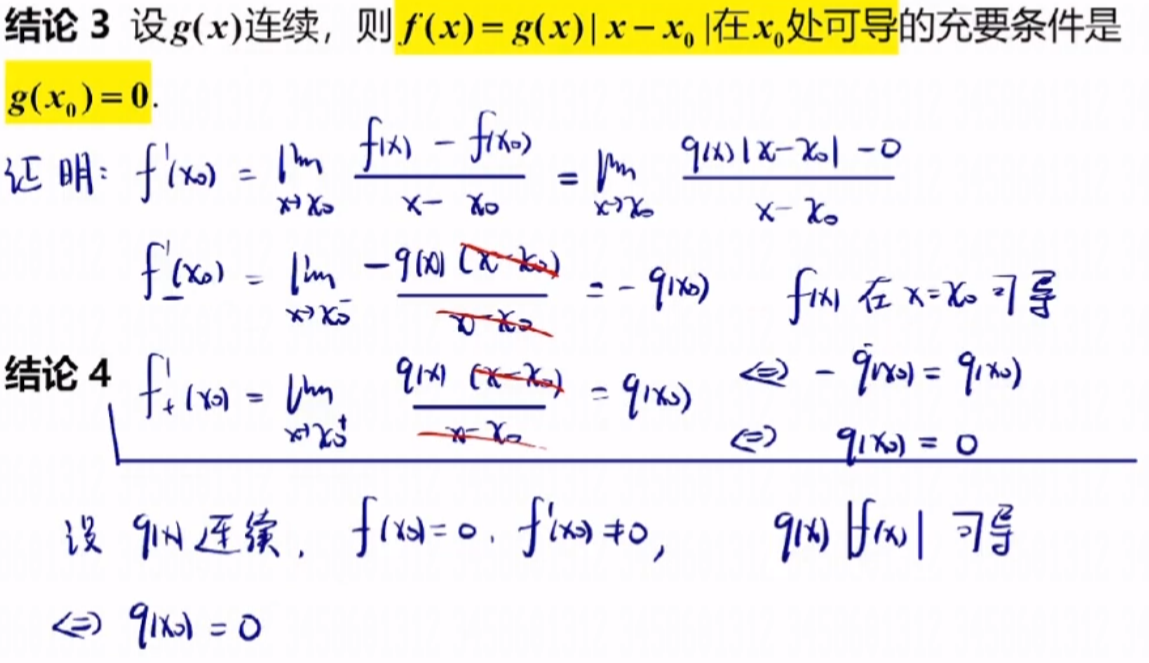 结论 3 设g(x)连续，则 f(x) = g(x)| x − x₀ |在 x₀处可导的充要条件是
g(x₀) = 0.
证明: f'(x₀) = lim_{x→x₀} (f(x) − f(x₀))/(x − x₀) = lim_{x→x₀} (g(x)|x−x₀| − 0)/(x − x₀)
f'₋(x₀) = lim_{x→x₀⁻} (−g(x)(x−x₀))/(x−x₀) = −g(x₀) f(x) 在 x=x₀ 可导
结论 4 f'₊(x₀) = lim_{x→x₀⁺} (g(x)(x−x₀))/(x−x₀) = g(x₀) <=> −g(x₀) = g(x₀)
<=> g(x₀) = 0
设 g(x) 连续, f(x₀)=0, f'(x₀)≠0, g(x)|f(x)| 可导
<=> g(x₀) = 0